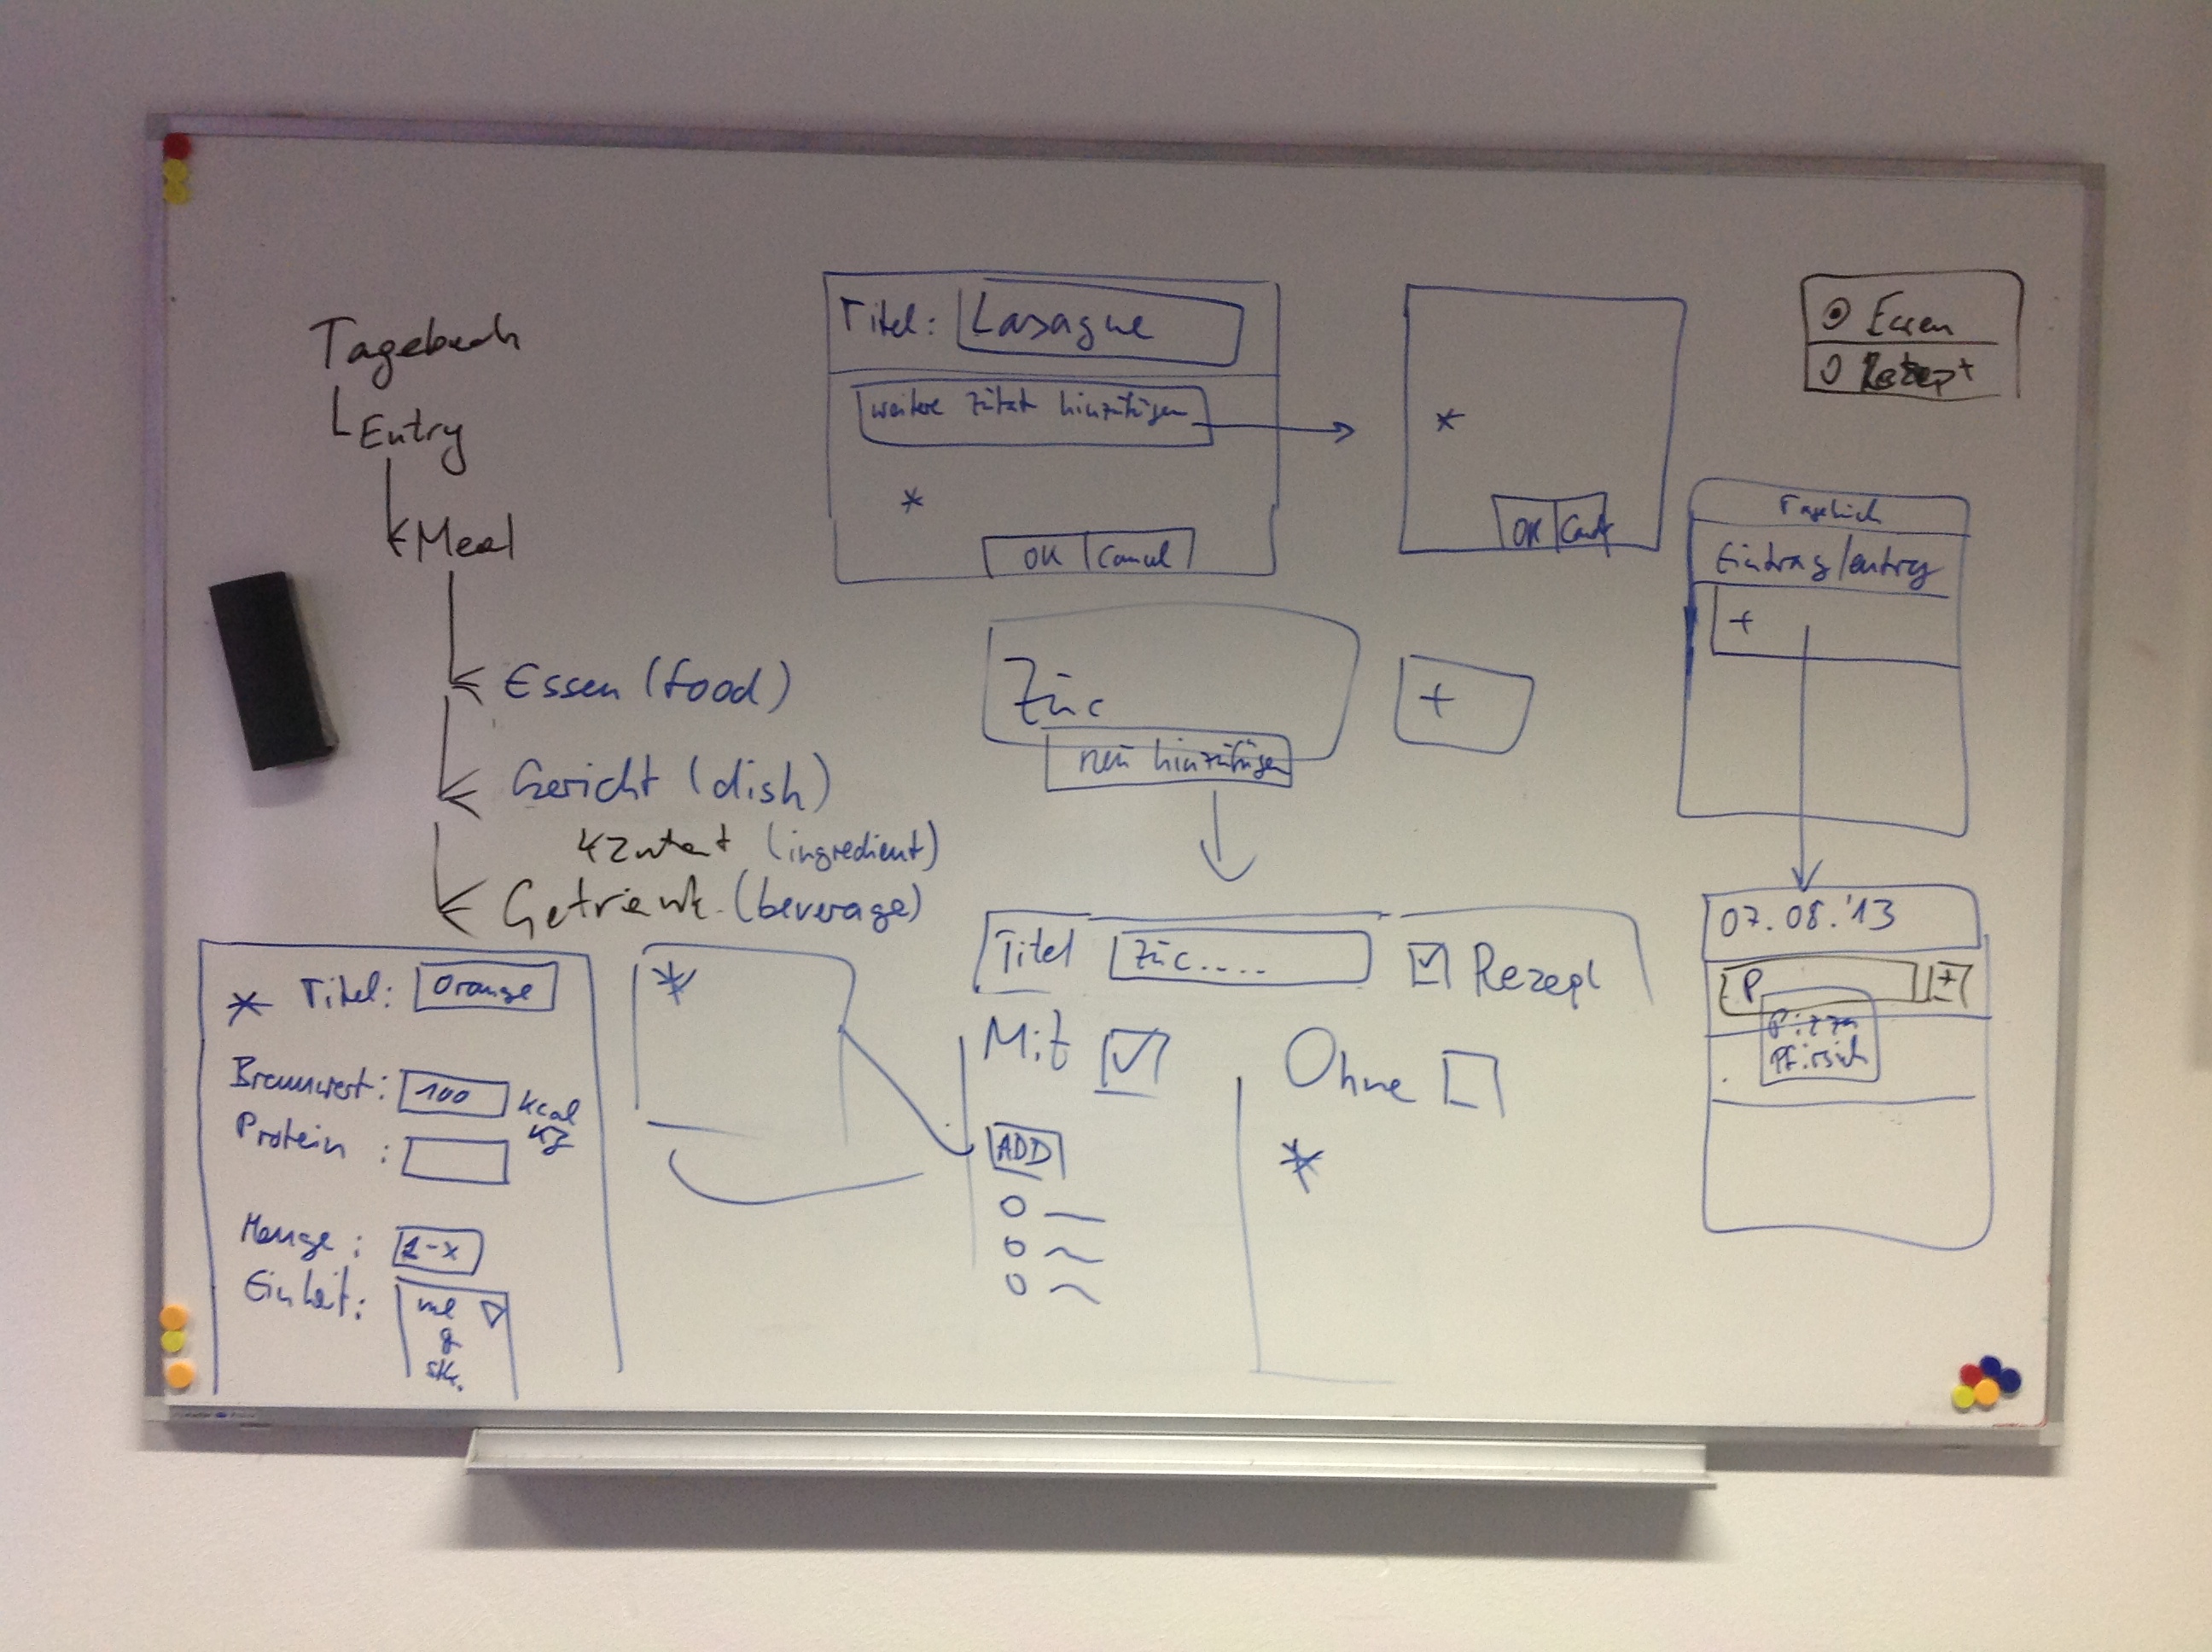 Tagebuch
Entry
Meal
Essen (food)
Gericht (dish)
Zutat (ingredient)
Getränk (beverage)
* Titel: Orange
Brennwert: 100 kcal
kJ
Protein :
Menge: 1-x
Einheit: ml
g
Stk.
Titel: Lasagne
weitere Zutat hinzufügen
*
OK Cancel
*
OK Canc
Essen
Rezept
Züc
neu hinzufügen
+
*
Titel Züc.... Rezept
Mit
Ohne
ADD
*
Tagebuch
Eintrag/entry
+
07.08.'13
P +
Pizza
Pfirsich